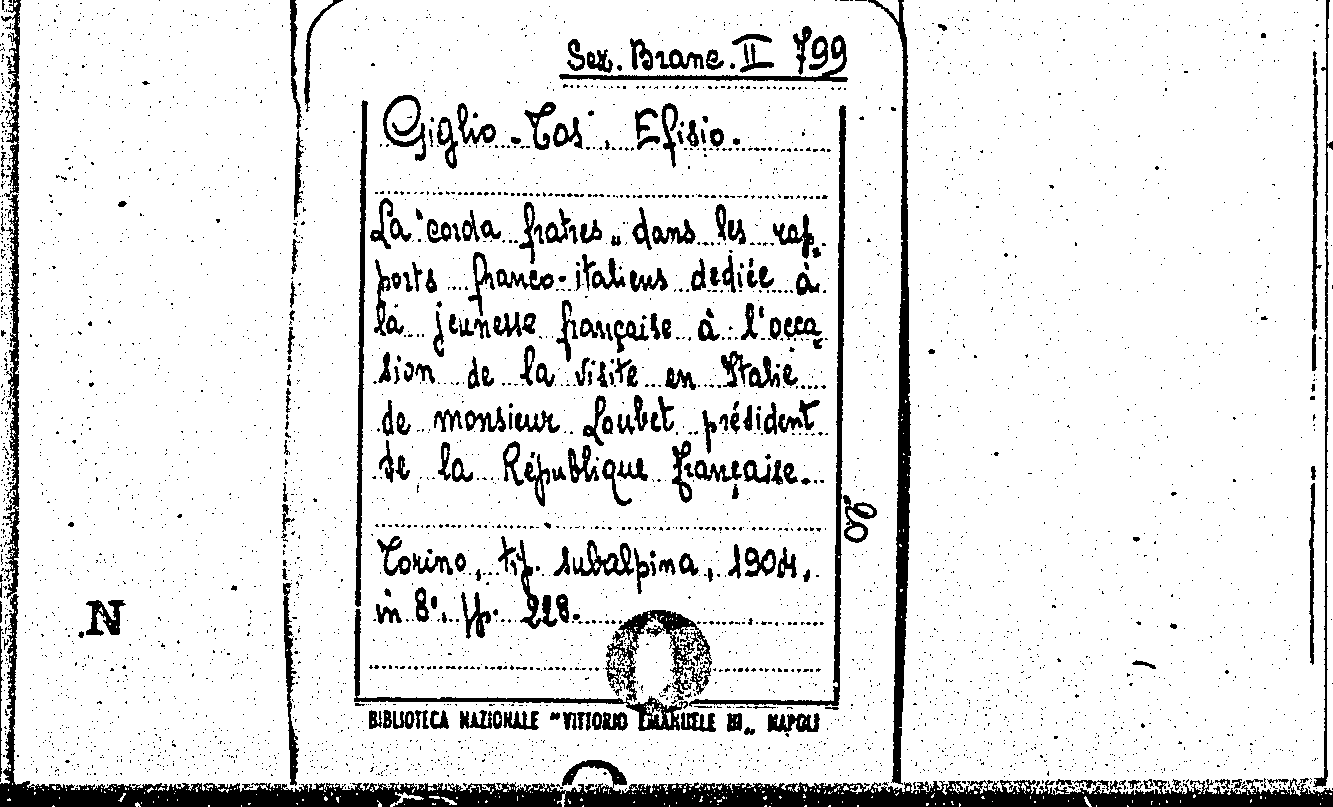 Sez. Branc. II 799
Giglio-Tos, Efisio.
La "corda fratres„ dans les rap-
ports franco-italiens dediée à
la jeunesse française à l'occa-
sion de la visite en Italie
de monsieur Loubet président
de la République française.
Torino, tip. subalpina, 1904,
in 8°, pp. 228.
BIBLIOTECA NAZIONALE "VITTORIO EMANUELE III„ NAPOLI
N